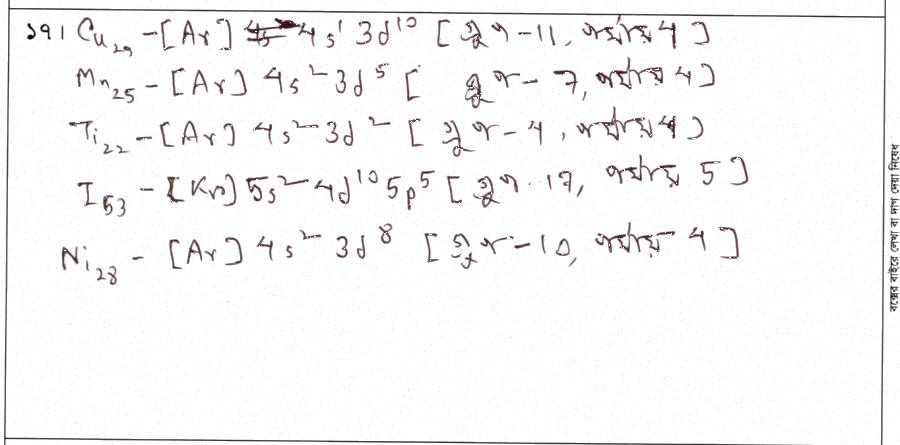 ১৭। Cu₂₉ - [Ar] 4s¹ 3d¹⁰ [গ্রুপ-11, পর্যায় 4]
Mn₂₅ - [Ar] 4s² 3d⁵ [গ্রুপ-7, পর্যায় 4]
Ti₂₂ - [Ar] 4s² 3d² [গ্রুপ-4, পর্যায় 4]
I₅₃ - [Kr] 5s² 4d¹⁰ 5p⁵ [গ্রুপ 17, পর্যায় 5]
Ni₂₈ - [Ar] 4s² 3d⁸ [গ্রুপ-10, পর্যায় 4]
বক্সের বাইরে লেখা বা দাগ দেয়া নিষেধ